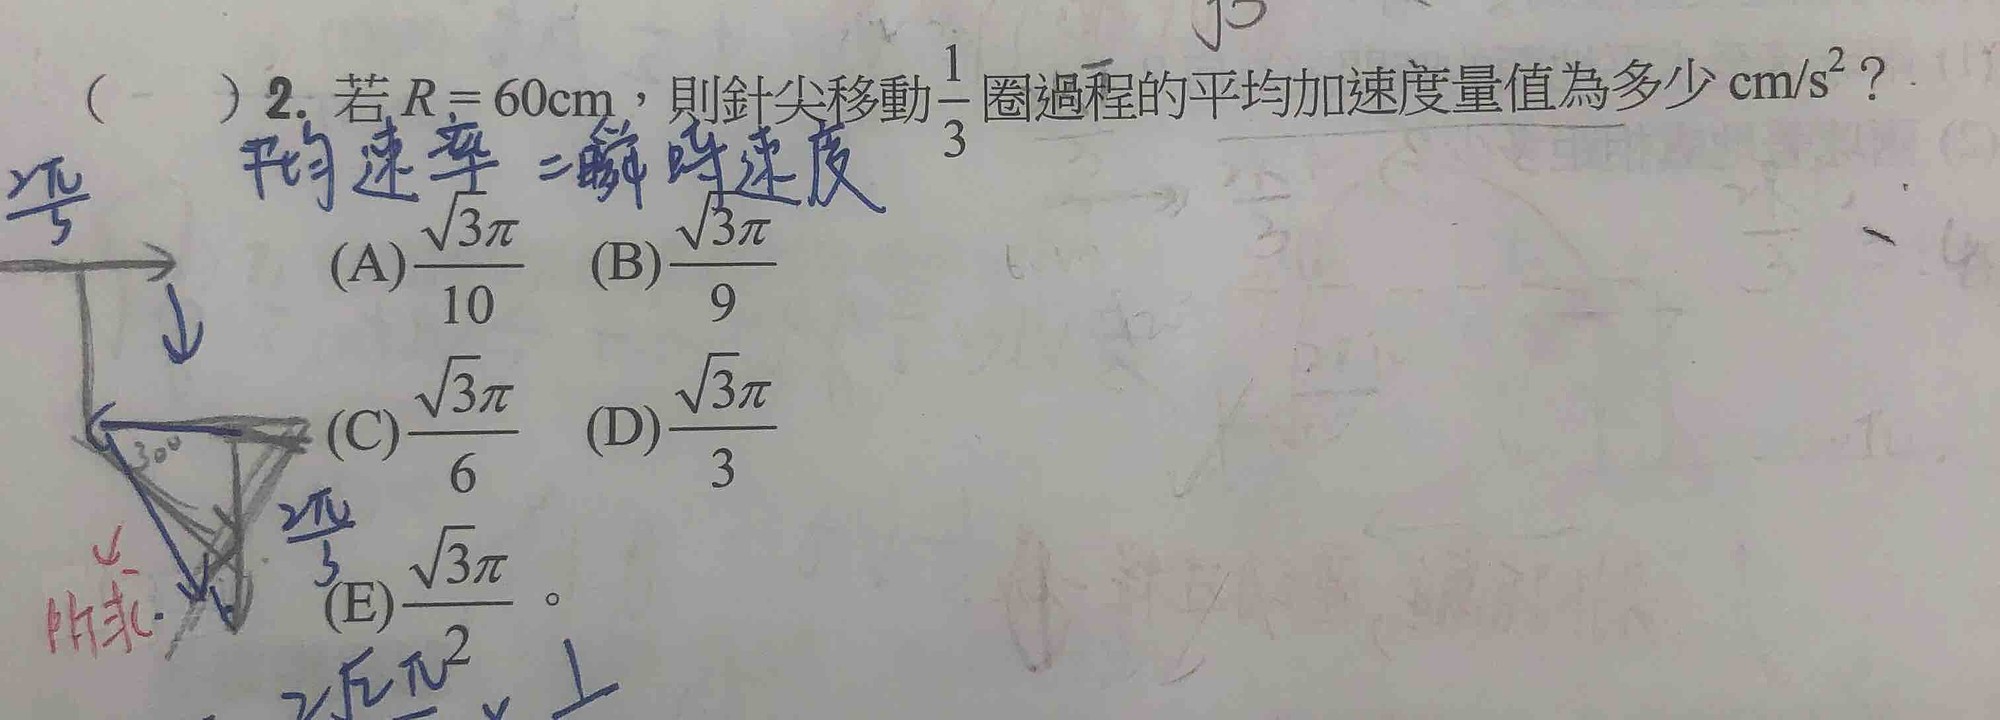 √3
( ) 2. 若 R = 60cm,則針尖移動 1/3 圈過程的平均加速度量值為多少 cm/s²?
平均速率 = 瞬時速度
2π/3
(A) √3π/10 (B) √3π/9
(C) √3π/6 (D) √3π/3
30°
2π/3
(E) √3π/2 。
所求
2√2π × 1